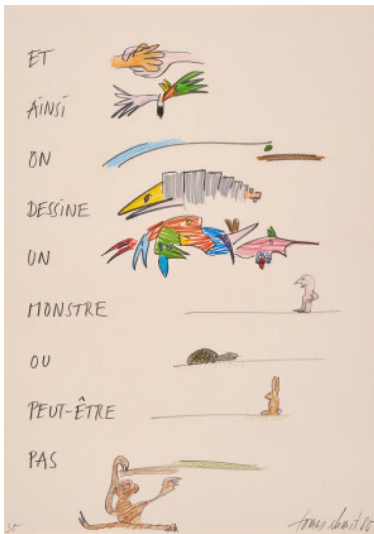 ET
AINSI
ON
DESSINE
UN
MONSTRE
OU
PEUT-ÊTRE
PAS